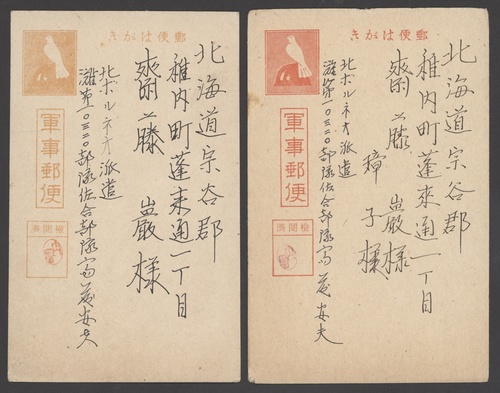 郵便はがき
北海道宗谷郡
稚内町蓬来通一丁目
齋藤 巖 様
北ボルネオ派遣
灘第一〇三二〇部隊佐合部隊
安夫
軍事郵便
檢閲済
郵便はがき
北海道宗谷郡
稚内町蓬來通一丁目
齋藤 巖様
子様
北ボルネオ派遣
灘第一〇三二〇部隊佐合部隊
安夫
軍事郵便
檢閲済